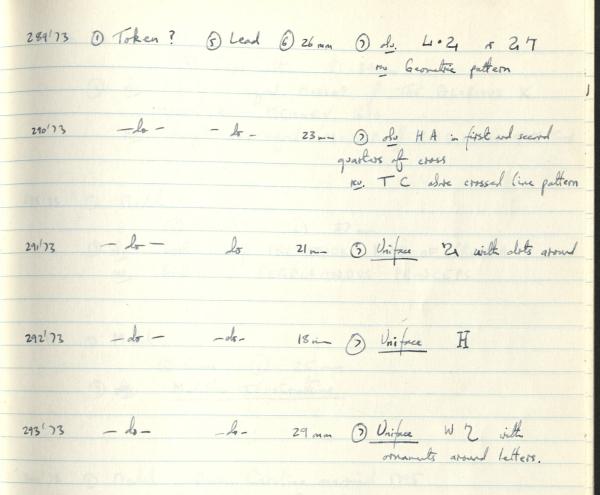 289'73 ① Token? ⑤ Lead ⑥ 26 mm ⑦ obv. L•Z or Z7
rev Geometric pattern
290'73 —do— —do— 23 mm ⑦ obv H A in first and second
quarters of cross
rev. T C above crossed line pattern
291'73 —do— do 21 mm ⑦ Uniface Z with dots around
292'73 —do— —do— 18 mm ⑦ Uniface H
293'73 —do— —do— 29 mm ⑦ Uniface W Z with
ornaments around letters.